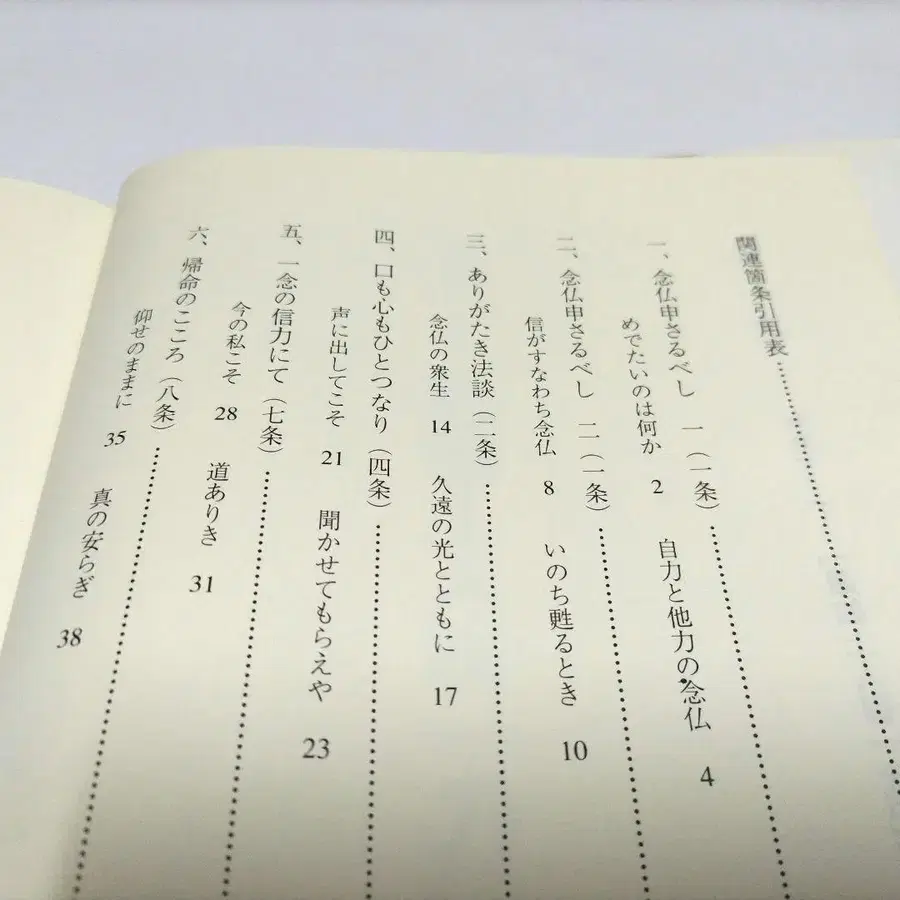 関連箇条引用表
一、念仏申さるべし 一（一条）
めでたいのは何か 2 自力と他力の念仏 4
二、念仏申さるべし 二（一条）
信がすなわち念仏 8 いのち甦るとき 10
三、ありがたき法談（二条）
念仏の衆生 14 久遠の光とともに 17
四、口も心もひとつなり（四条）
声に出してこそ 21 聞かせてもらえや 23
五、一念の信力にて（七条）
今の私こそ 28 道ありき 31
六、帰命のこころ（八条）
仰せのままに 35 真の安らぎ 38